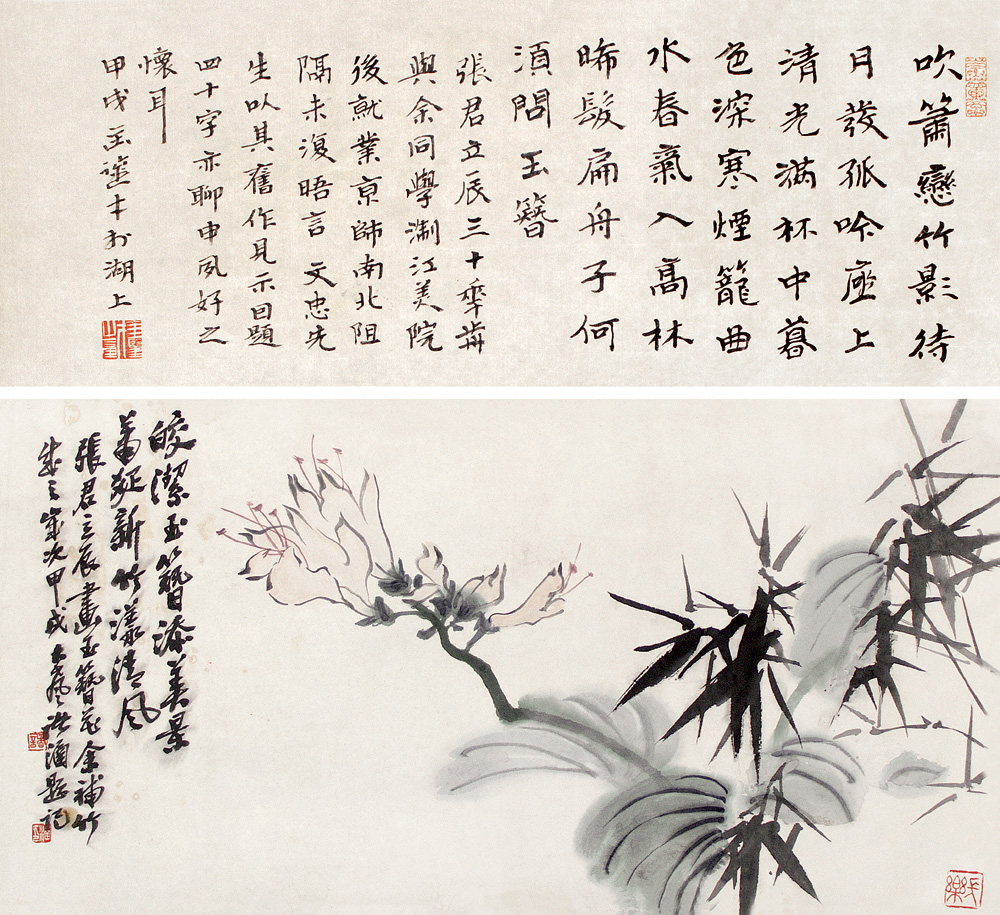 吹簫戀竹影待
月發孤吟座上
清光滿杯中暮
色深寒煙籠曲
水春氣入高林
晞髮扁舟子何
須問玉簪
張君立辰三十年前
與余同學浙江美院
後就業京師南北阻
隔未復晤言文忠先
生以其舊作見示因題
四十字亦聊申夙好之
懷耳
甲戌玉遙半於湖上
皎潔玉簪添美景
蕭疑新竹漾清風
張君立辰畫玉簪花余補竹
成之歲次甲戌大風洪涌題記